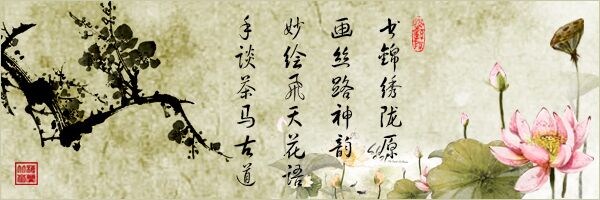 书锦绣陇原
画丝路神韵
妙绘飞天花语
手谈茶马古道